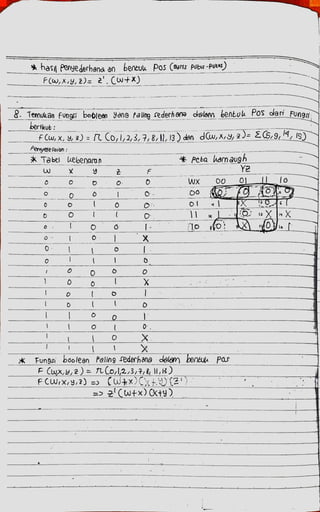 * hasil Penyederhanaan bentuk Pos (garis putus-putus)
F(w,x,y,z) = z'. (w+x)
8. Temukan fungsi boolean yang paling sederhana dalam bentuk Pos dari fungsi
berikut:
F(w,x,y,z) = π(0,1,2,3,7,8,11,13) dan d(w,x,y,z) = Σ(5,9,14,15)
Penyelesaian:
* Tabel kebenaran * Peta karnaugh
w x y z F YZ
0 0 0 0 0 WX 00 01 11 10
0 0 0 1 0 00 0 0 0 0
0 0 1 0 0 01 1 X 0 1
0 0 1 1 0 11 1 0 X X
0 1 0 0 1 10 0 X 0 1
0 1 0 1 X
0 1 1 0 1
0 1 1 1 0
1 0 0 0 0
1 0 0 1 X
1 0 1 0 1
1 0 1 1 0
1 1 0 0 1
1 1 0 1 0
1 1 1 0 X
1 1 1 1 X
* Fungsi boolean Paling sederhana dalam bentuk Pos
F (w,x,y,z) = π(0,1,2,3,7,8,11,13)
F (w,x,y,z) => (w+x)(x+y)(z')
=> z'(w+x)(x+y)